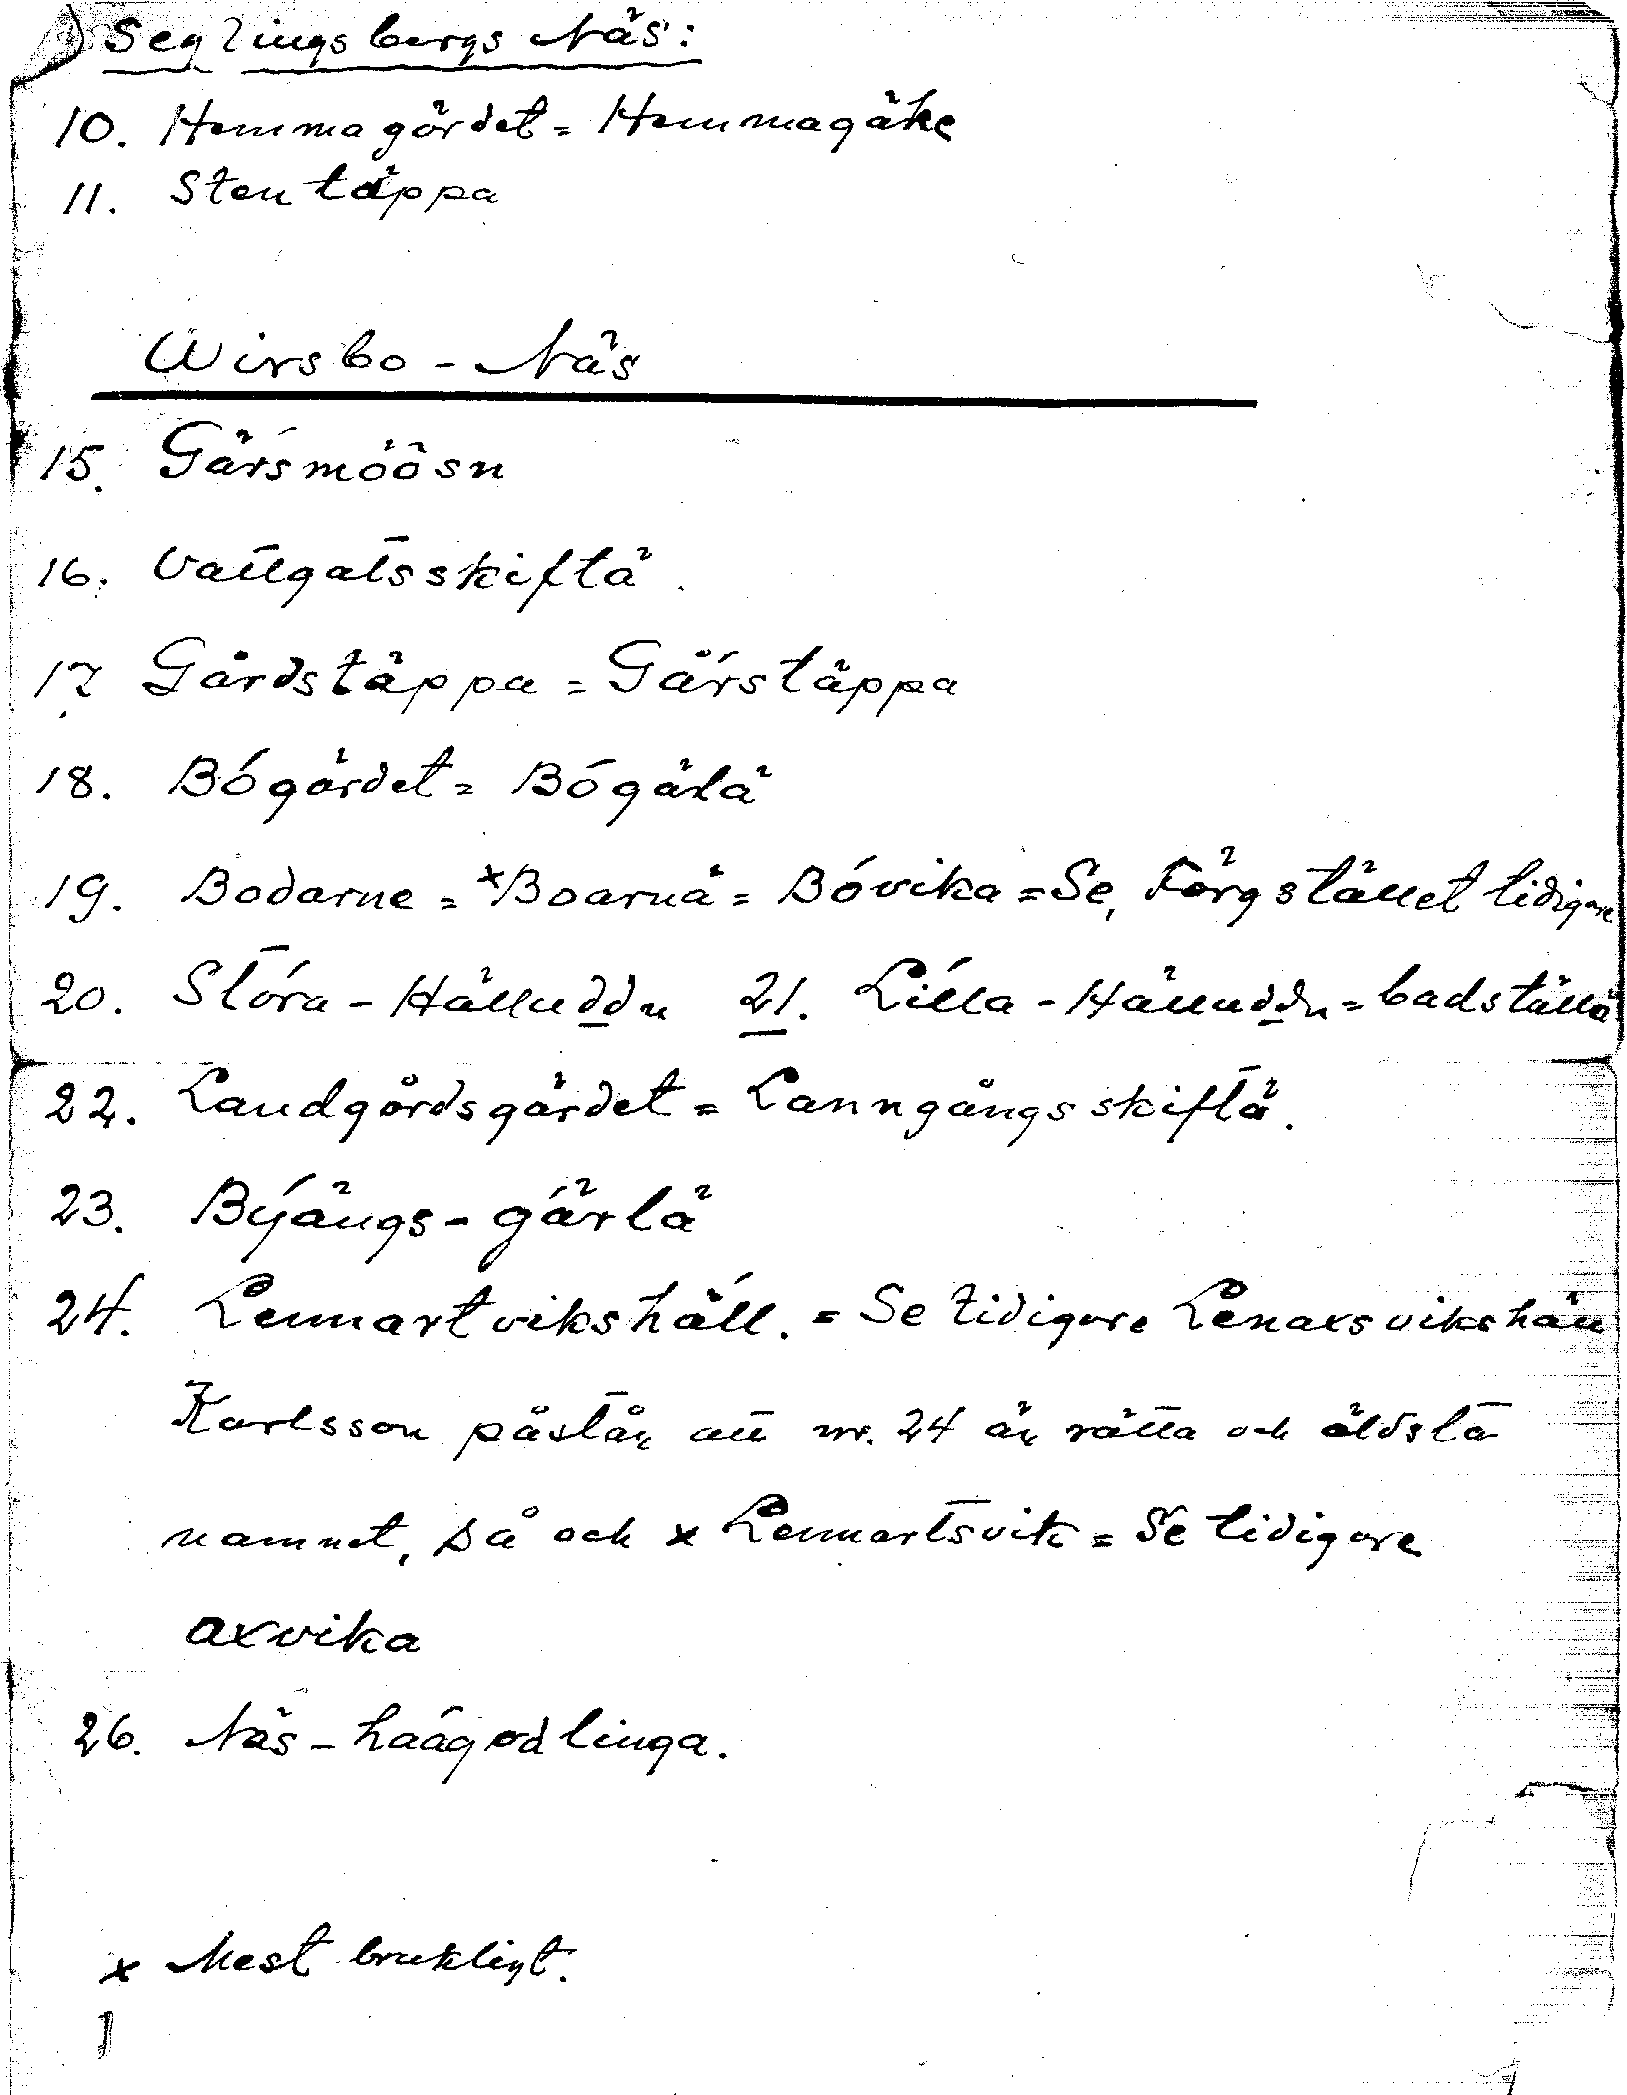 Seglingsbergs Näs:
10. Hemmagärdet = Hemmagäḱe
11. Stentäppa
Wirsbo - Näs
15. Gärsmöösn
16. Vattgatsskiftä.
17. Gårdstäppa = Gårstäppa
18. Bógärdet = Bógälä
19. Bodarne = ˣBoarnä = Bóvika = Se, Färgstället tidigare
20. Stóra - Hälluddn 21. Lilla - Hälluddn = badställä
22. Landgårdsgärdet = Lanngångsskiftä.
23. Býängs - gärlä
24. Lennartvikshäll. = Se tidigare Lenaxsvikshäll
Karlsson påstår att nr. 24 är rätta och äldsta
namnet, så och x Lennartsvik = Se tidigare
axvika
26. Näs - haágodlinga.
x Mest brukligt.